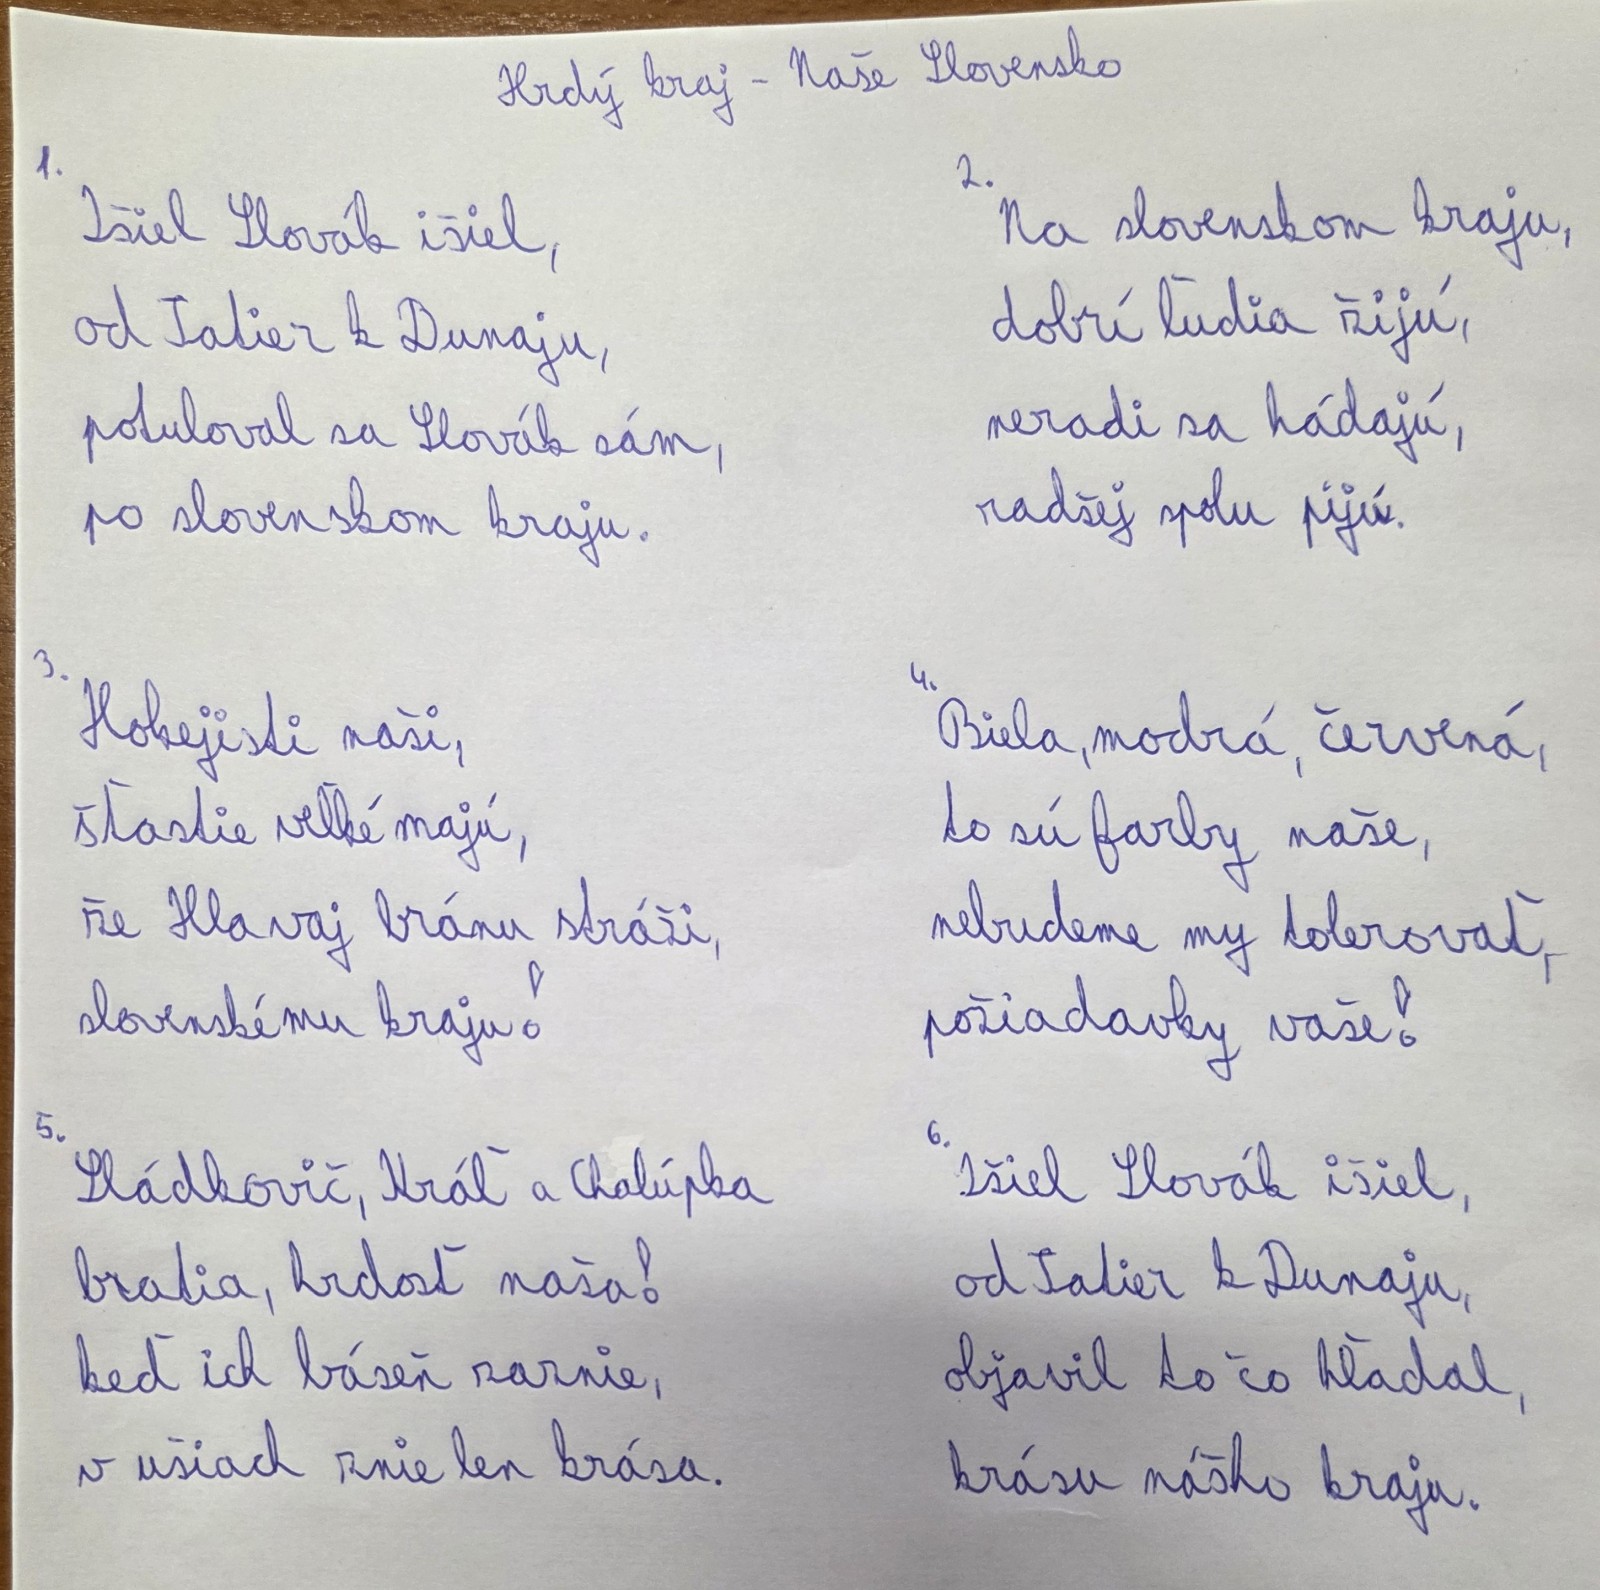 Hrdý kraj - Naše Slovensko
1.
Išiel Slovák išiel,
od Tatier k Dunaju,
potuloval sa Slovák sám,
po slovenskom kraju.
2.
Na slovenskom kraju,
dobrí ľudia žijú,
neradi sa hádajú,
radšej spolu pijú.
3.
Hokejisti naši,
šťastie veľké majú,
že Hlavaj bránu stráži,
slovenskému kraju!
4.
Biela, modrá, červená,
to sú farby naše,
nebudeme my tolerovať,
požiadavky vaše!
5.
Sládkovič, Kráľ a Chalúpka
bratia, hrdosť naša!
keď ich báseň zaznie,
v ušiach znie len krása.
6.
Išiel Slovák išiel,
od Tatier k Dunaju,
objavil to čo hľadal,
krásu nášho kraju.